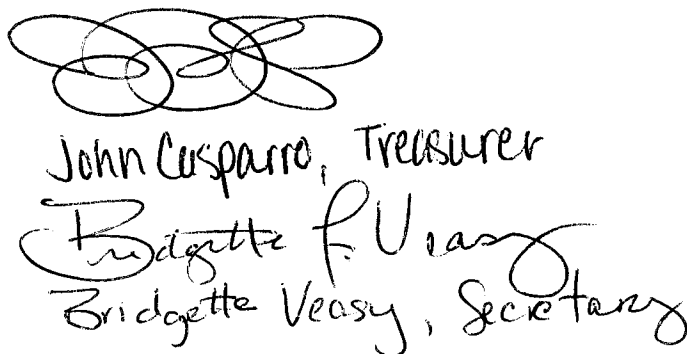 John Casparro, Treasurer
Bridgette F. Veasy
Bridgette Veasy, Secretary